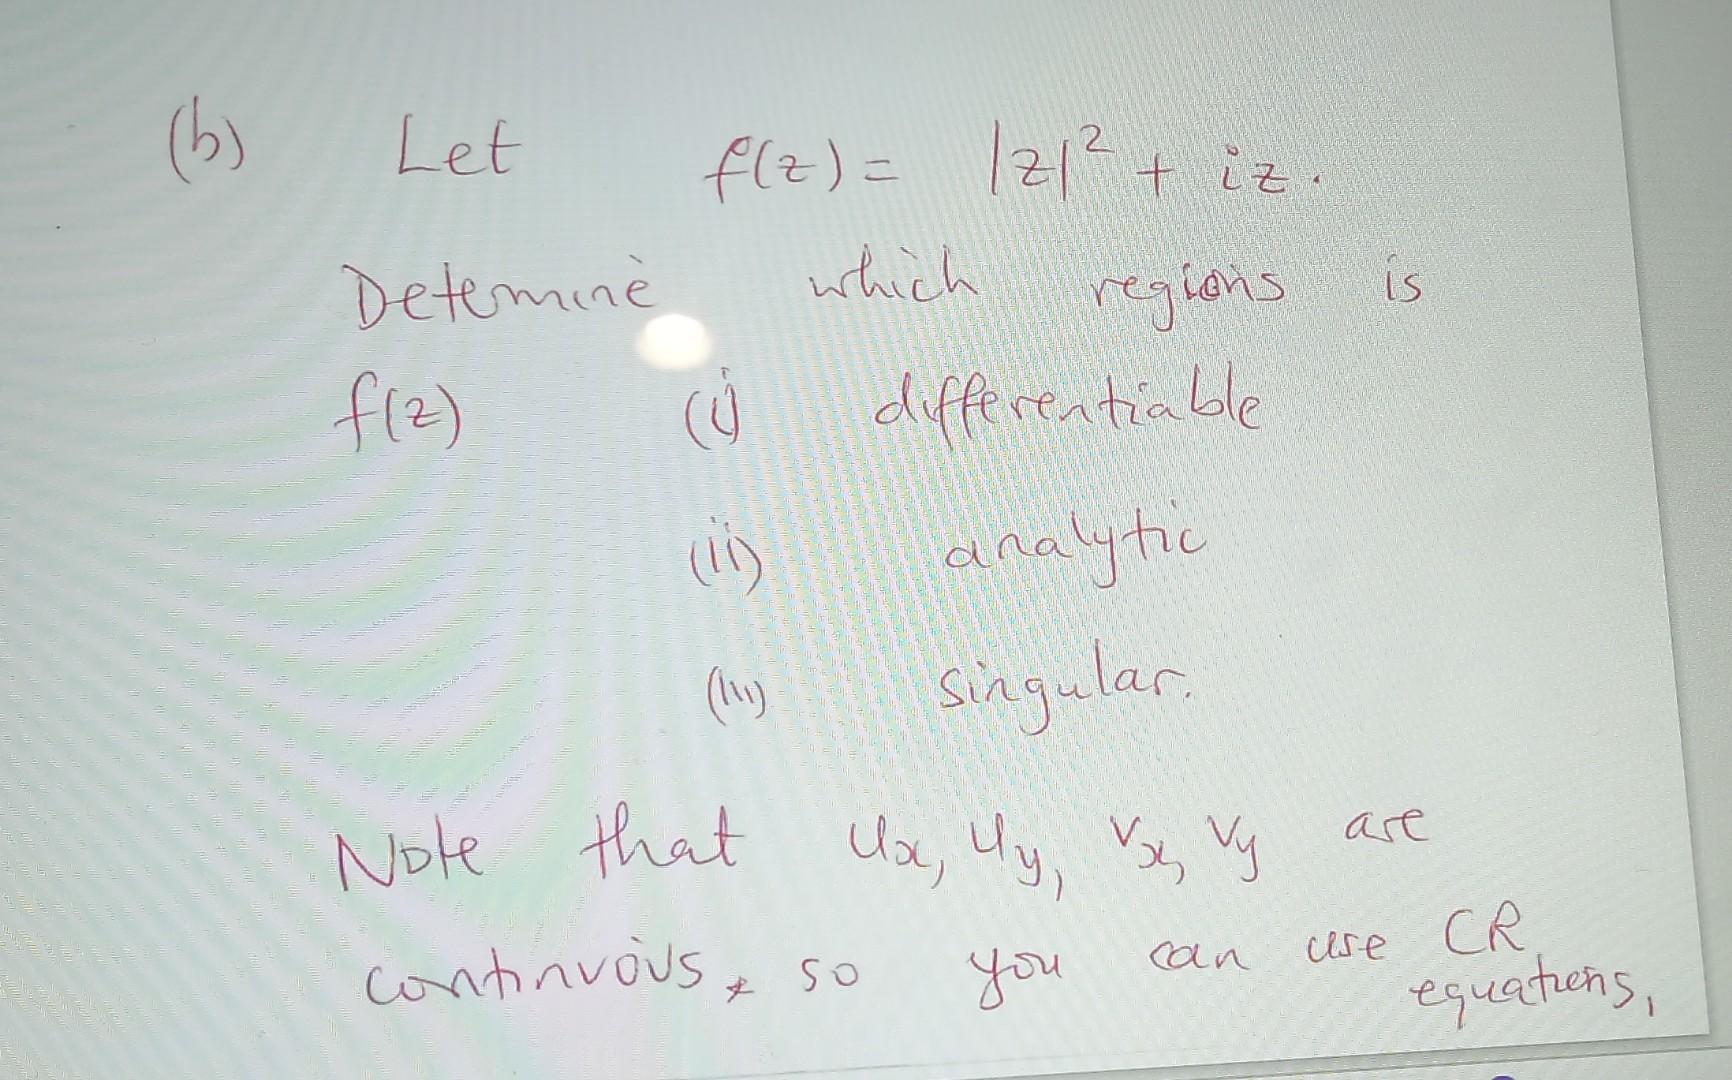 (b) Let f(z) = |z|² + iz.
Determine which regions is
f(z) (i) differentiable
(ii) analytic
(iii) singular.
Note that uₓ, u_y, vₓ, v_y are
continuous, so you can use CR
equations,